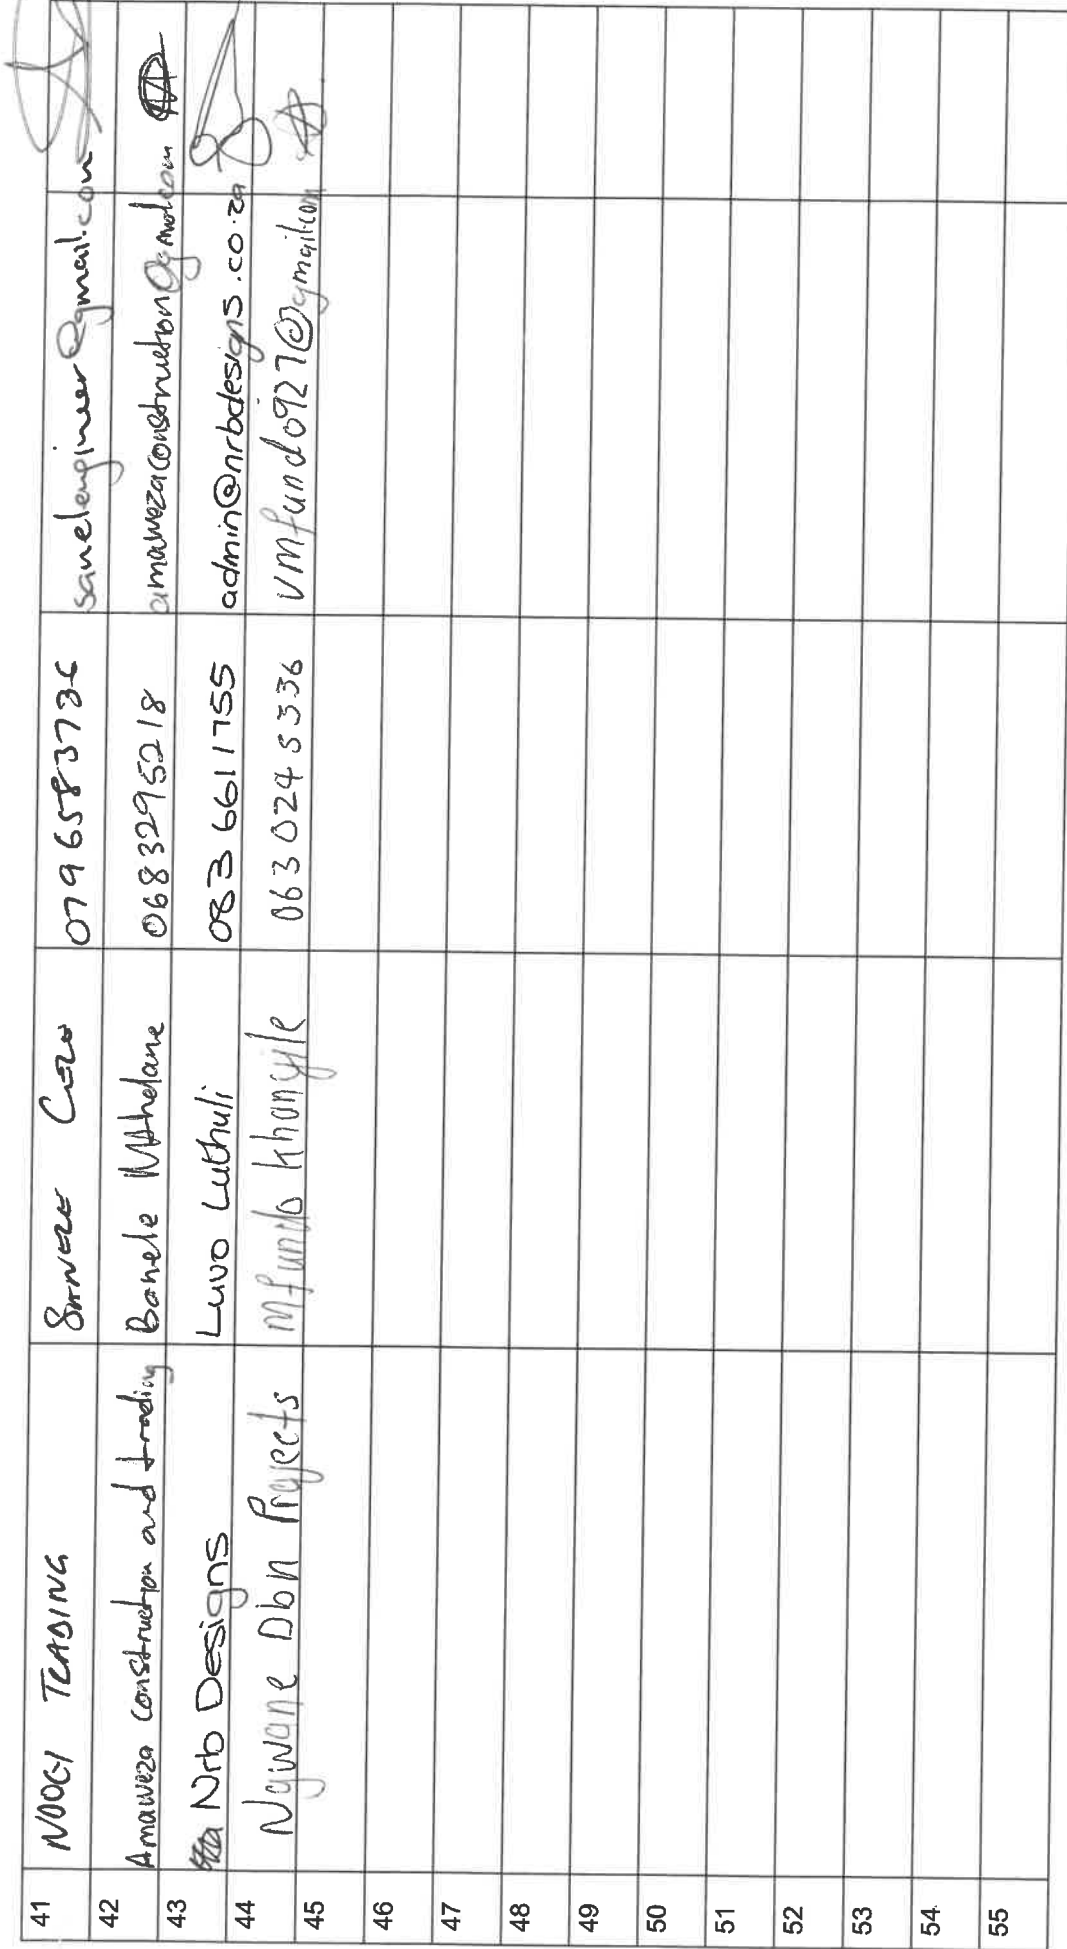 41 NOOGI TRADING 0796583736 sanelengineer@gmail.com
42 Amaweza construction and trading Banele Mthelane 0683295218 amawezaconstruction@gmail.com
43 Nrb Designs Luvo Luthuli 083 661 1755 admin@nrbdesigns.co.za
44 Ngwane Dbn Projects Mfundo Khanyile 063 024 5336 vmfundo927@gmail.com
45
46
47
48
49
50
51
52
53
54
55